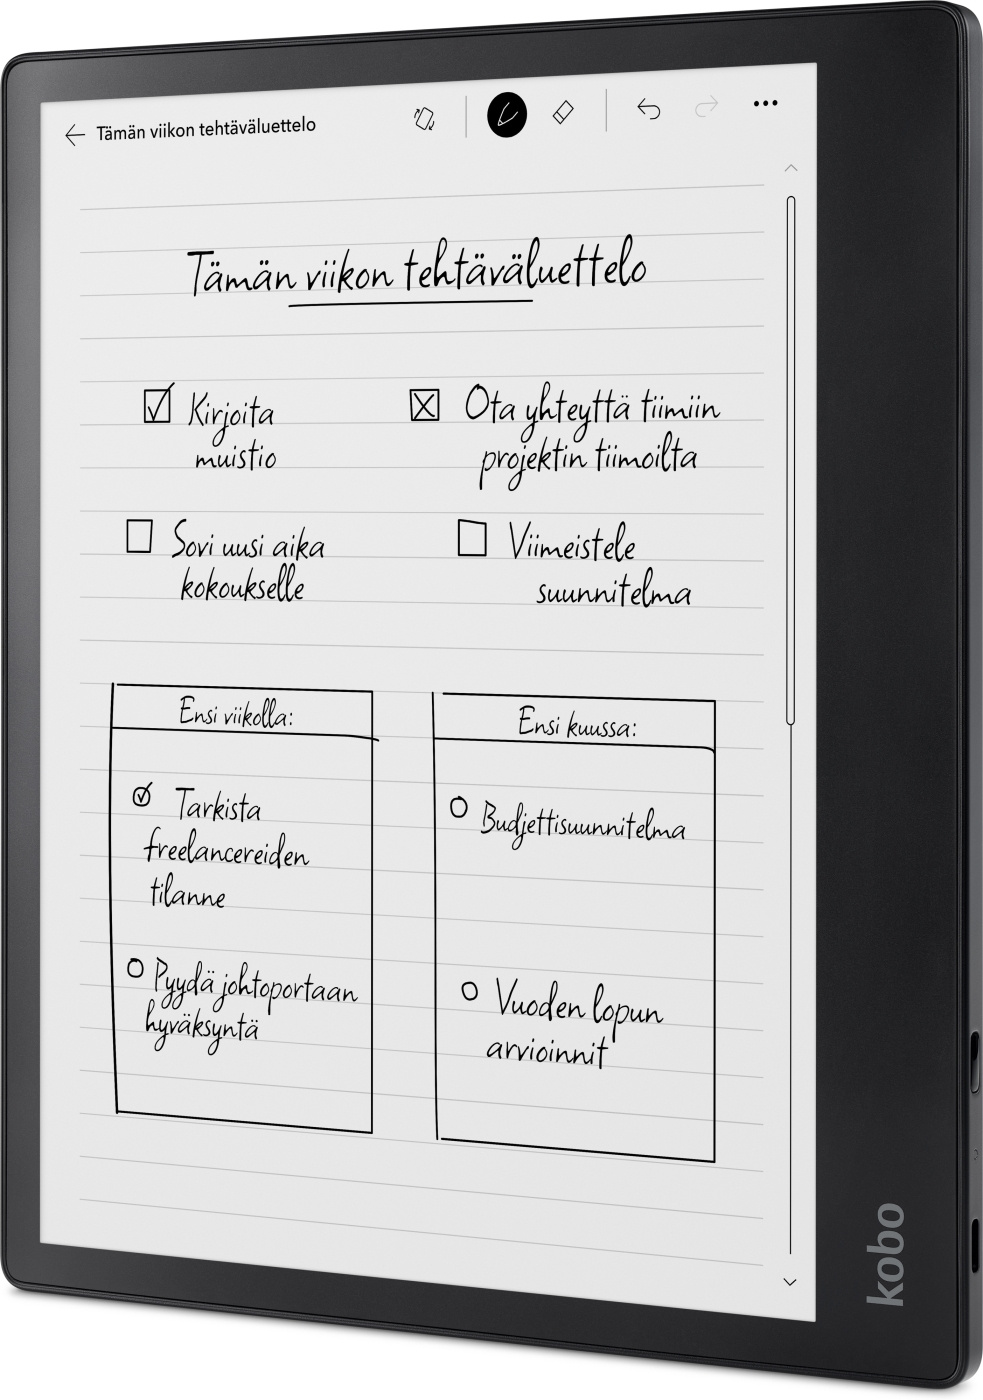 Tämän viikon tehtäväluettelo
Tämän viikon tehtäväluettelo
Kirjoita
muistio
Ota yhteyttä tiimiin
projektin tiimoilta
Sovi uusi aika
kokoukselle
Viimeistele
suunnitelma
Ensi viikolla:
Tarkista
freelancereiden
tilanne
Pyydä johtoportaan
hyväksyntä
Ensi kuussa:
Budjettisuunnitelma
Vuoden lopun
arvioinnit
kobo